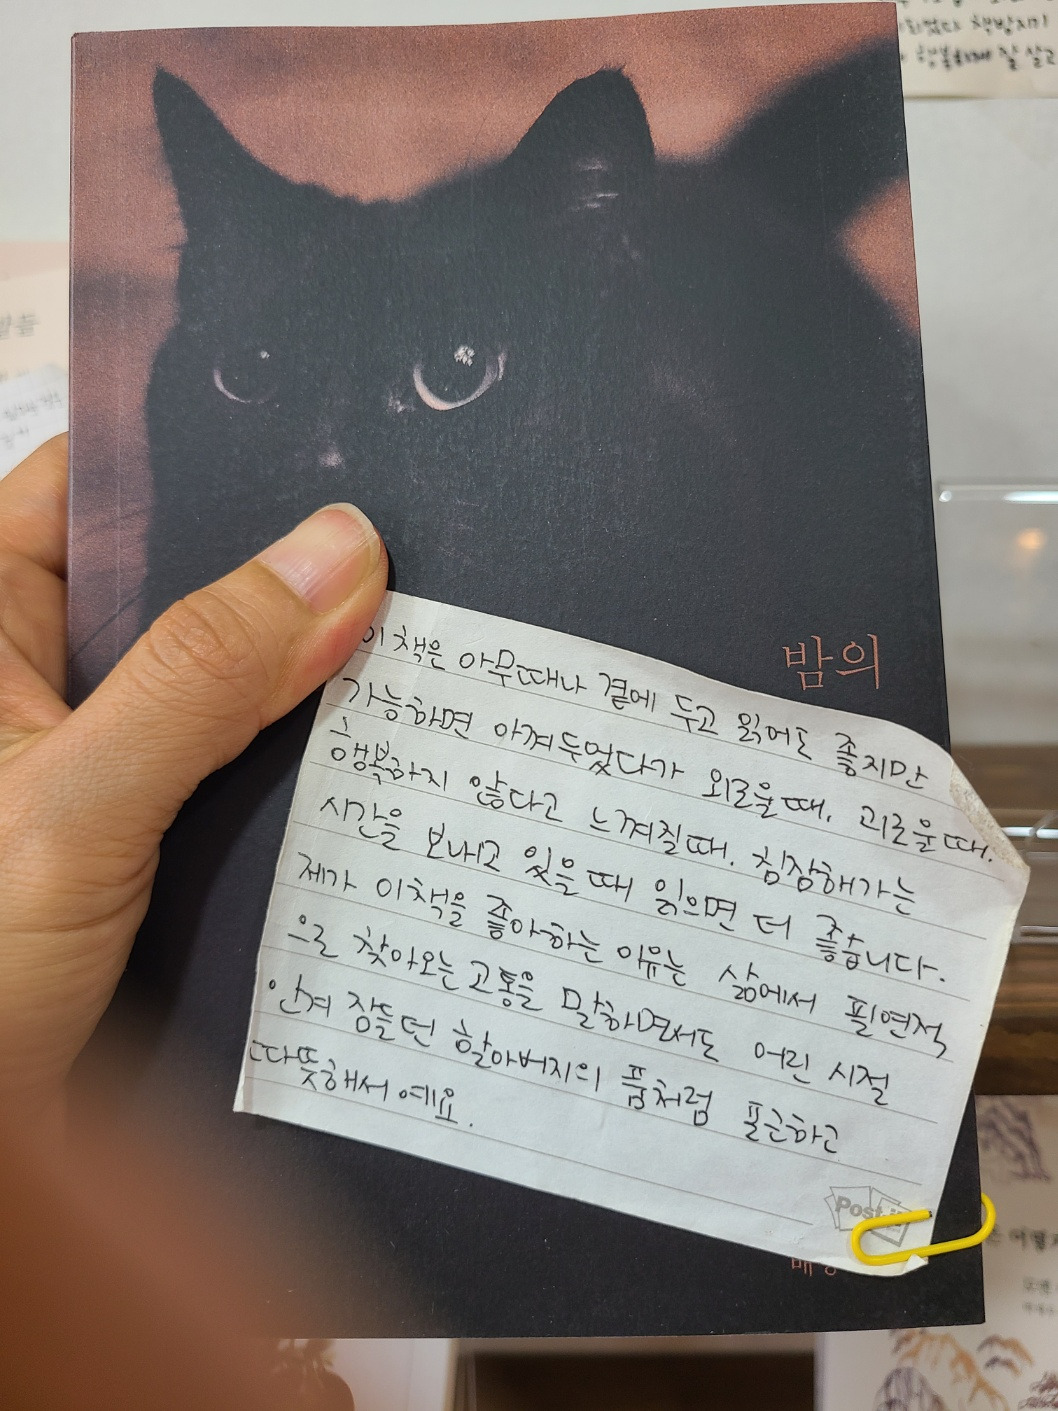 밤의
이 책은 아무때나 곁에 두고 읽어도 좋지만
가능하면 아껴두었다가 외로울때, 괴로울때,
행복하지 않다고 느껴질때, 침잠해가는
시간을 보내고 있을때 읽으면 더 좋습니다.
제가 이책을 좋아하는 이유는 삶에서 필연적
으로 찾아오는 고통을 말하면서도 어린 시절
안겨 잠들던 할아버지의 품처럼 포근하고
따뜻해서예요.
Post-it